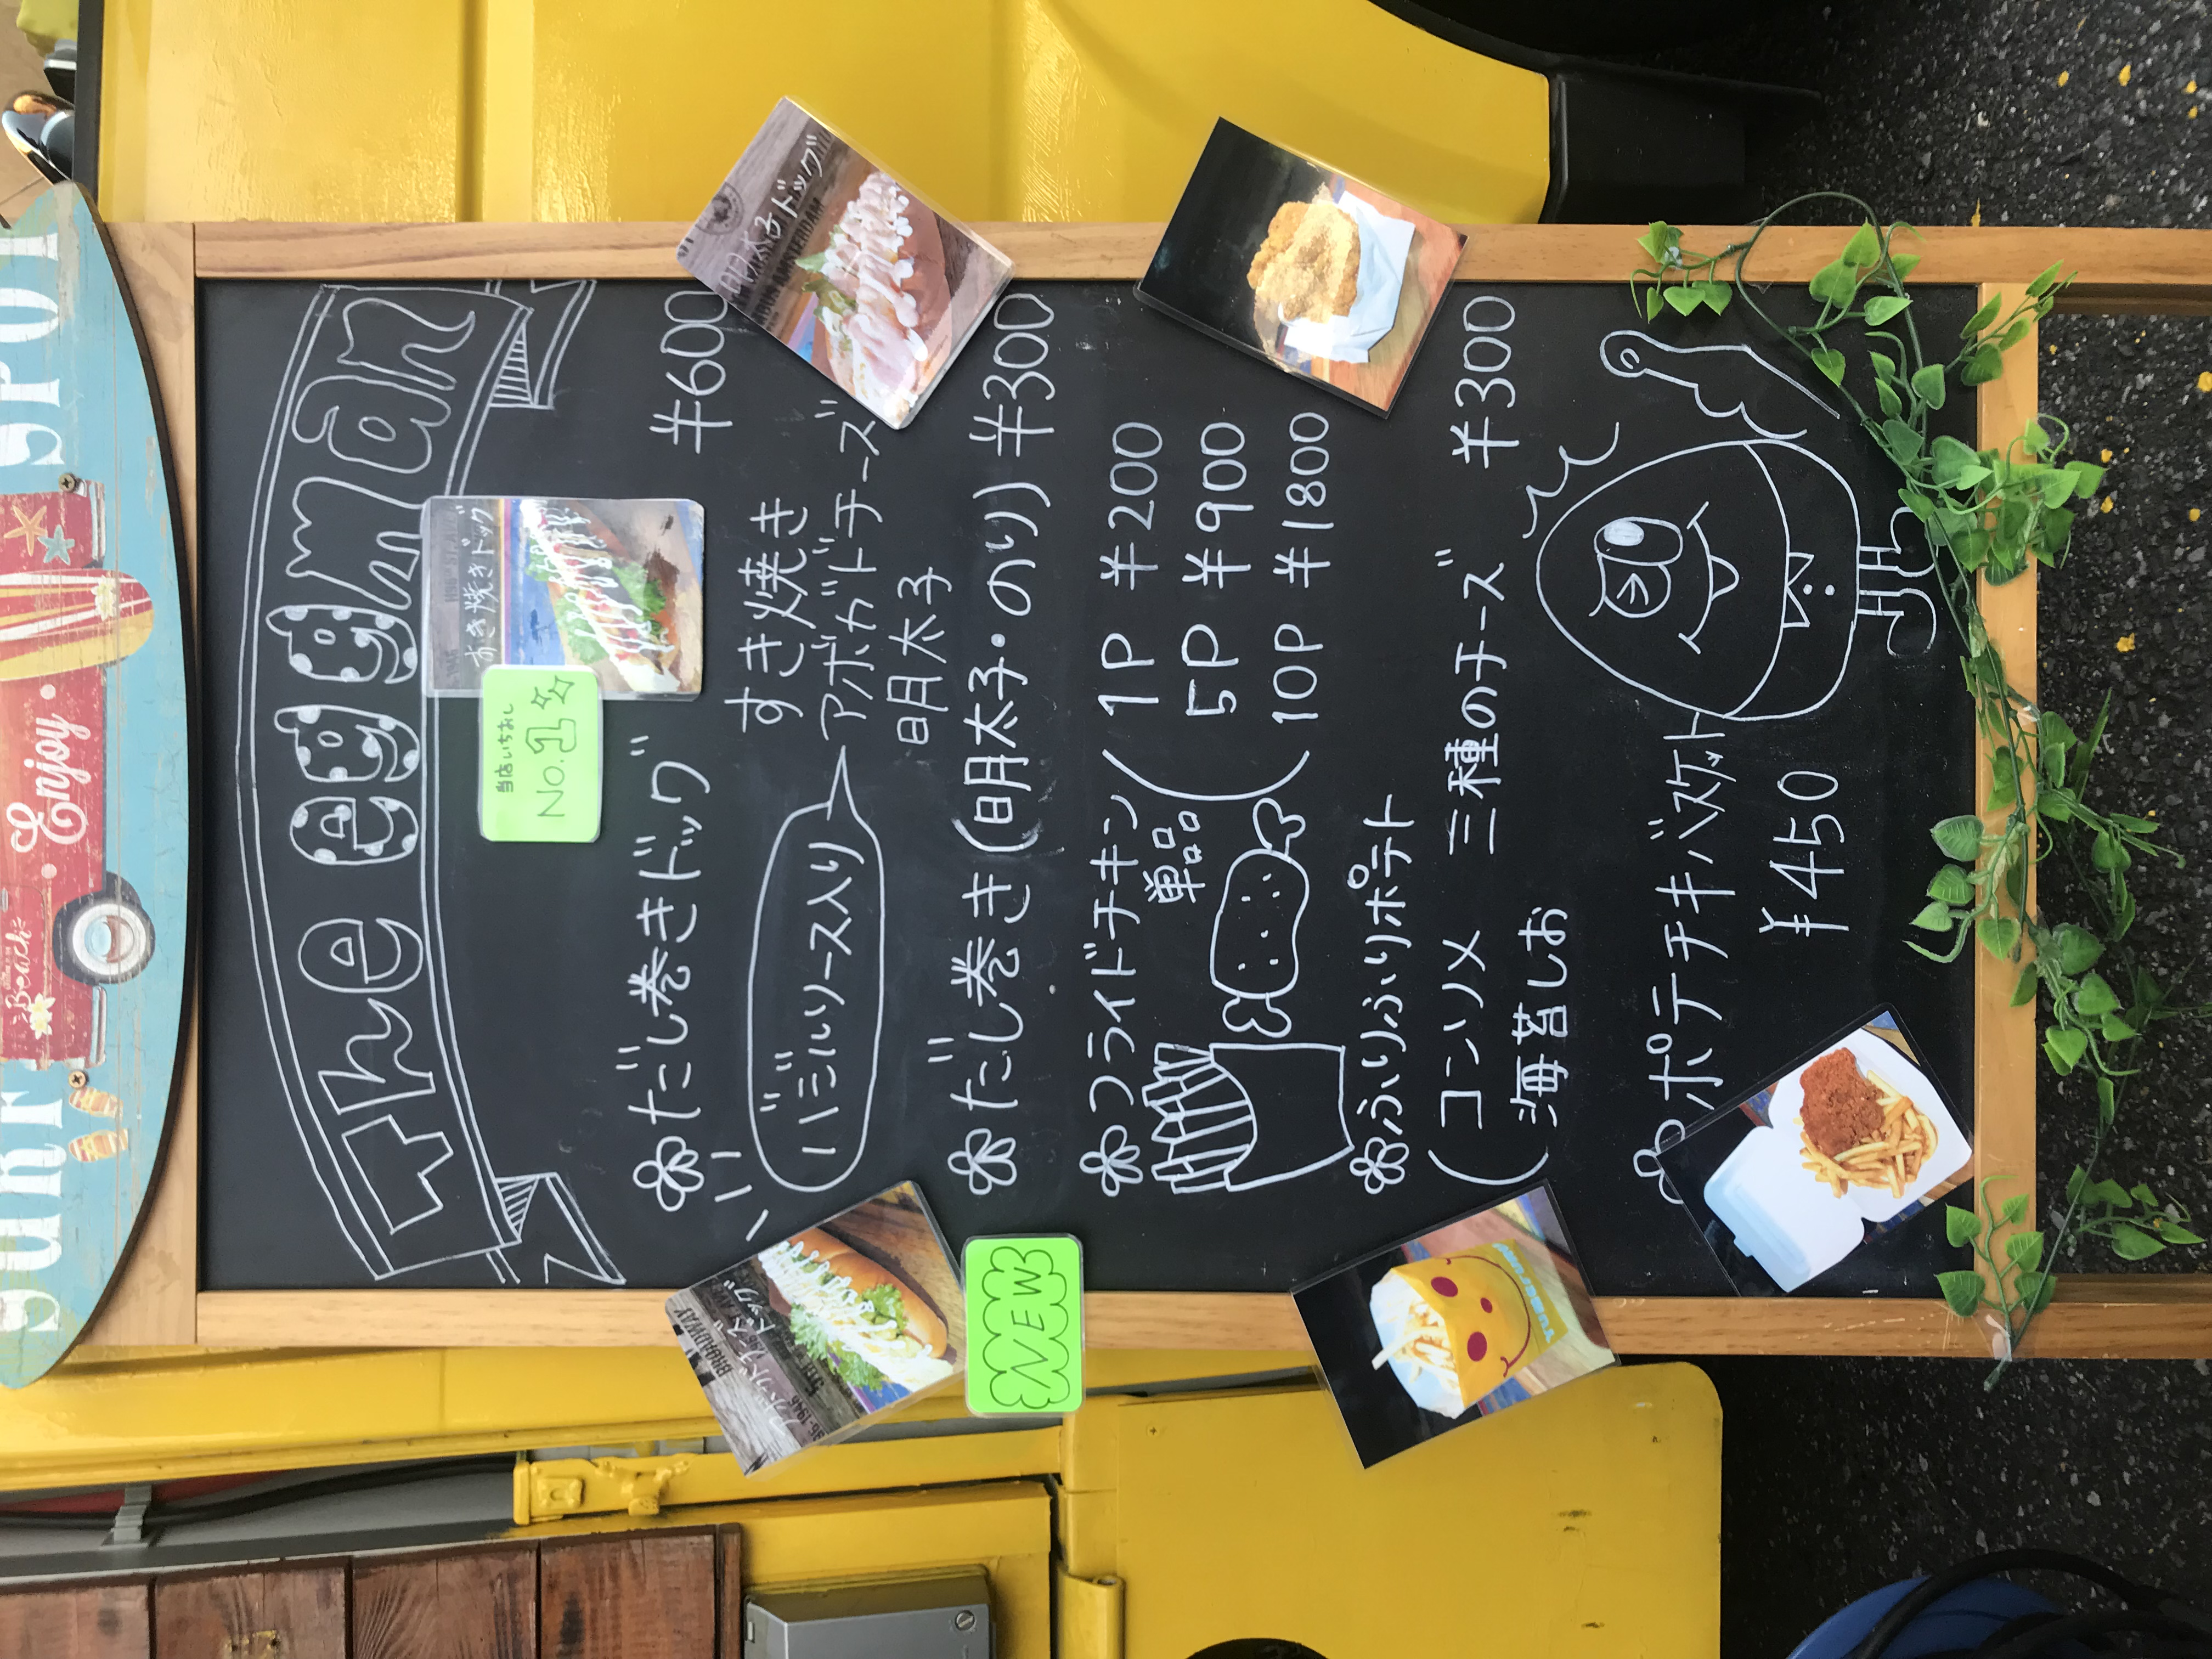 SURF SPOT
Beach
Enjoy
The eggman
すき焼きドッグ
当店いちおし
No.1
❀だし巻きドッグ ¥600
バジルソース入り
すき焼き
アボガドチーズ
明太子
明太子ドッグ
AMSTERDAM
アボカドチーズ
ドッグ
BROADWAY
NEW
❀だし巻き(明太子・のり) ¥300
❀フライドチキン
単品
(1P ¥200
5P ¥900
(10P ¥1800
❀ふりふりポテト ¥300
(コンソメ 三種のチーズ
海苔しお
❀ポテチキバスケット
¥450